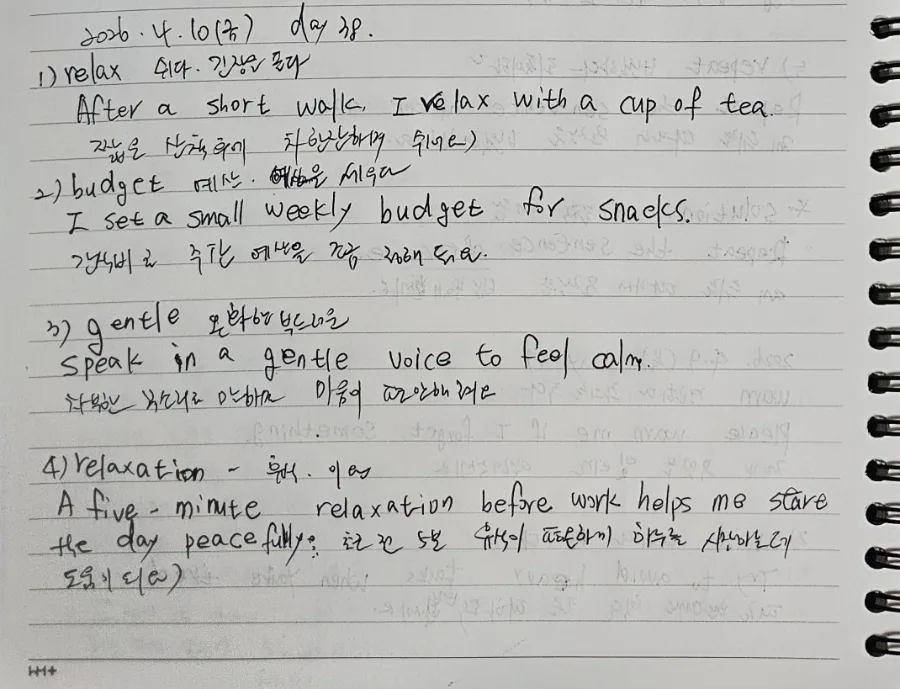 2026. 4. 10(금) day 38.
1) relax 쉬다. 긴장을 풀다
After a short walk, I relax with a cup of tea.
짧은 산책 후에 차 한잔하며 쉬어요)
2) budget 예산. 예산을 세우다
I set a small weekly budget for snacks.
간식비로 주간 예산을 조금 정해 둬요.
3) gentle 온화한 부드러운
speak in a gentle voice to feel calm.
차분한 목소리로 말하면 마음이 편안해져요
4) relaxation - 휴식. 이완
A five-minute relaxation before work helps me start
the day peacefully: 5분 휴식이 평온하게 하루를 시작하는데
도움이 되요)